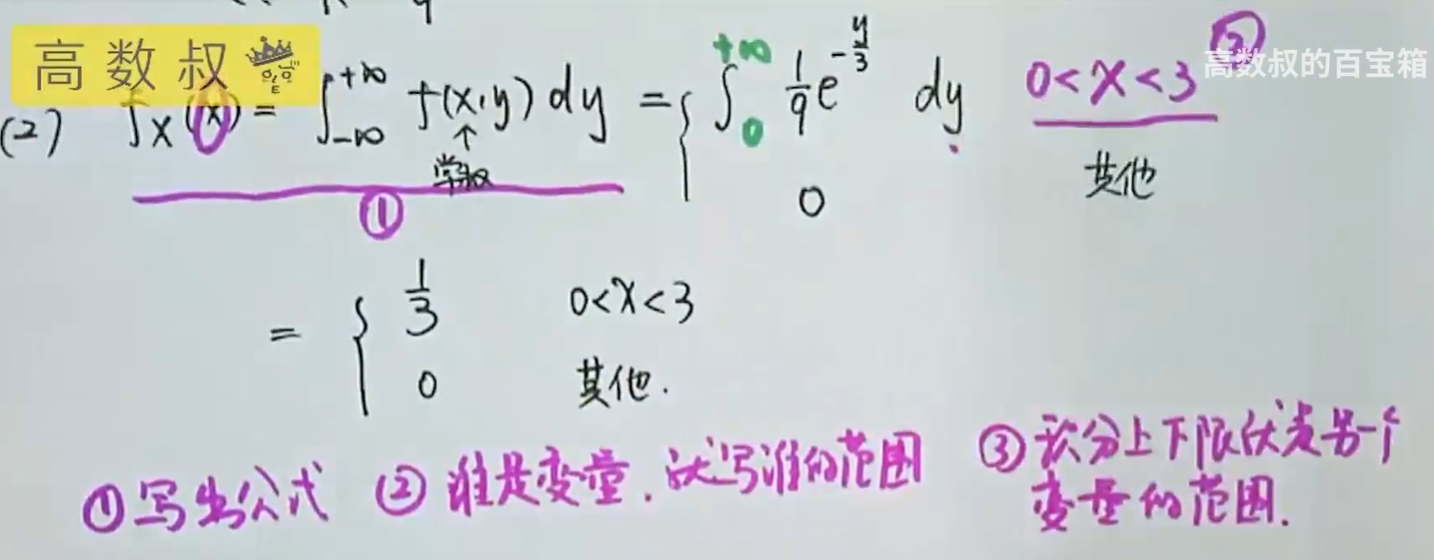 高数叔
高数叔的百宝箱
(2) f_X(x) = ∫_{-∞}^{+∞} f(x,y) dy = { ∫_0^{+∞} 1/9 e^{-y/3} dy 0<x<3 ②
常数 0 其他
①
= { 1/3 0<x<3
0 其他.
①写出公式 ②谁是变量,就写谁的范围 ③积分上下限代表另一个
变量的范围.